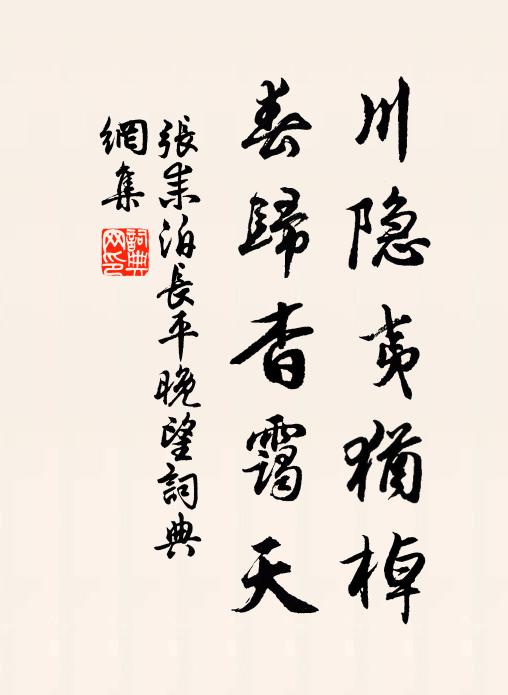 川隐夷猶棹
春歸杳靄天
張耒泊長平晚望詞典
網集
詞典
网印